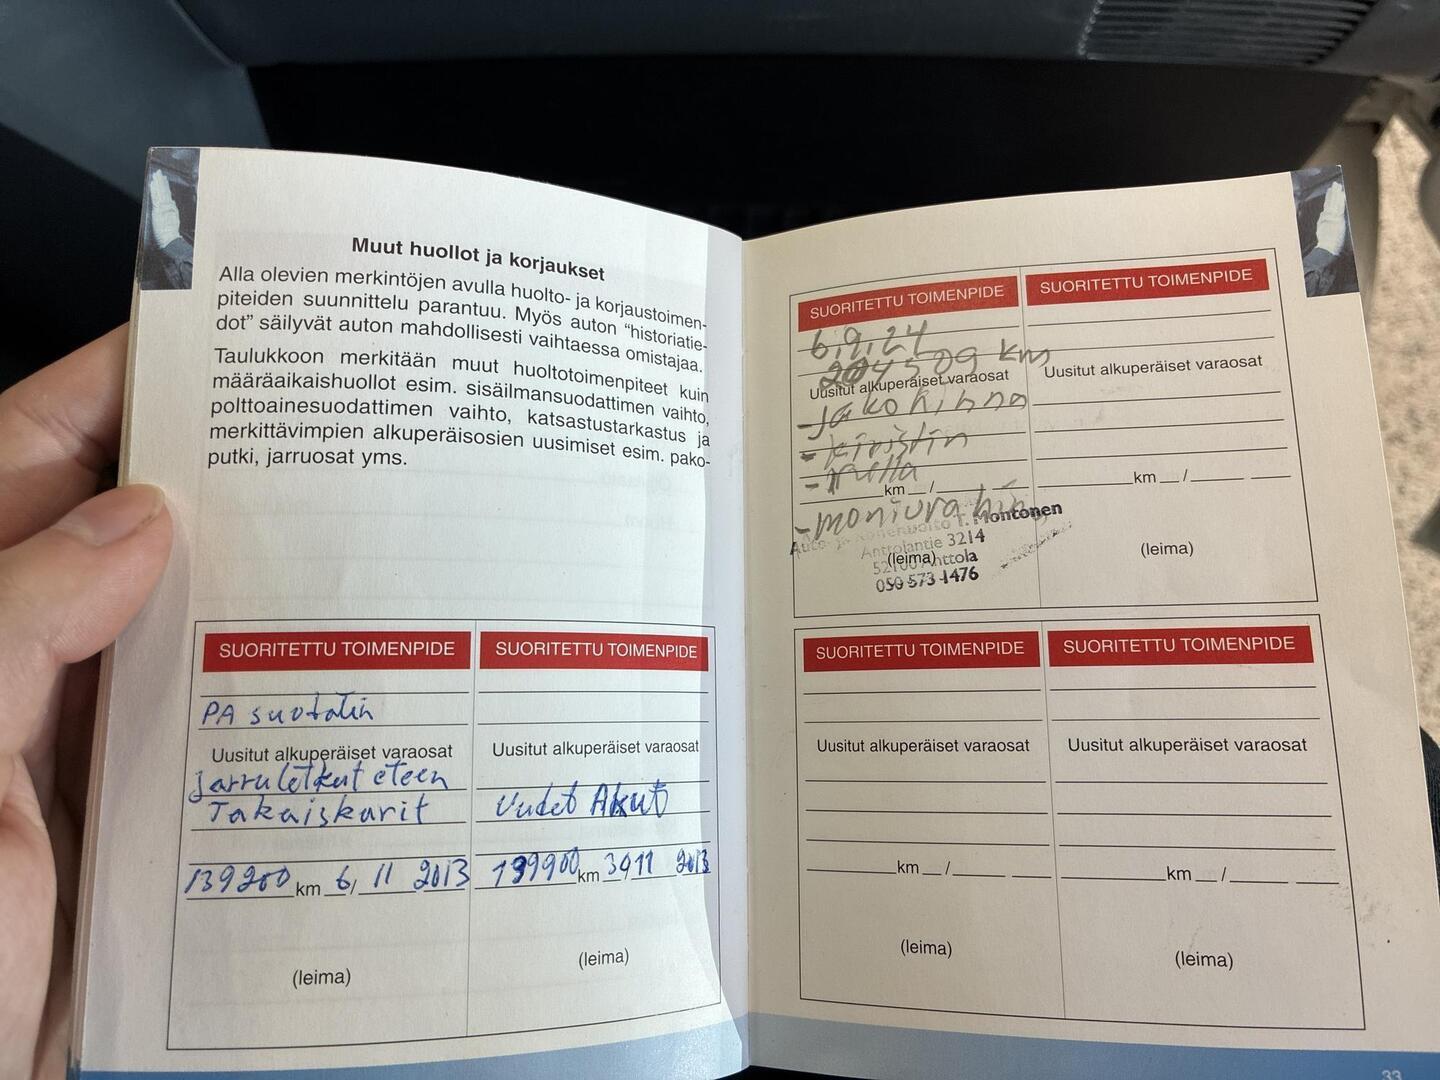 Muut huollot ja korjaukset
Alla olevien merkintöjen avulla huolto- ja korjaustoimen-
piteiden suunnittelu parantuu. Myös auton “historiatie-
dot” säilyvät auton mahdollisesti vaihtaessa omistajaa.
Taulukkoon merkitään muut huoltotoimenpiteet kuin
määräaikaishuollot esim. sisäilmansuodattimen vaihto,
polttoainesuodattimen vaihto, katsastustarkastus ja
merkittävimpien alkuperäisosien uusimiset esim. pako-
putki, jarruosat yms.
SUORITETTU TOIMENPIDE
PA suodatin
Uusitut alkuperäiset varaosat
Jarruletkut eteen
Takaiskarit
139200 km 6/ 11 2013
(leima)
SUORITETTU TOIMENPIDE
Uusitut alkuperäiset varaosat
Uudet Akut
139900 km 30/11 2013
(leima)
SUORITETTU TOIMENPIDE
6.9.24
204509 km
Uusitut alkuperäiset varaosat
- jakohihna
- kiristin
- rulla
km /
- moniurahihna
Auto- ja Konehuolto T. Montonen
Anttolantie 3214
52100 Anttola
(leima)
050 573 1476
SUORITETTU TOIMENPIDE
Uusitut alkuperäiset varaosat
km /
(leima)
SUORITETTU TOIMENPIDE
Uusitut alkuperäiset varaosat
km /
(leima)
SUORITETTU TOIMENPIDE
Uusitut alkuperäiset varaosat
km /
(leima)
33